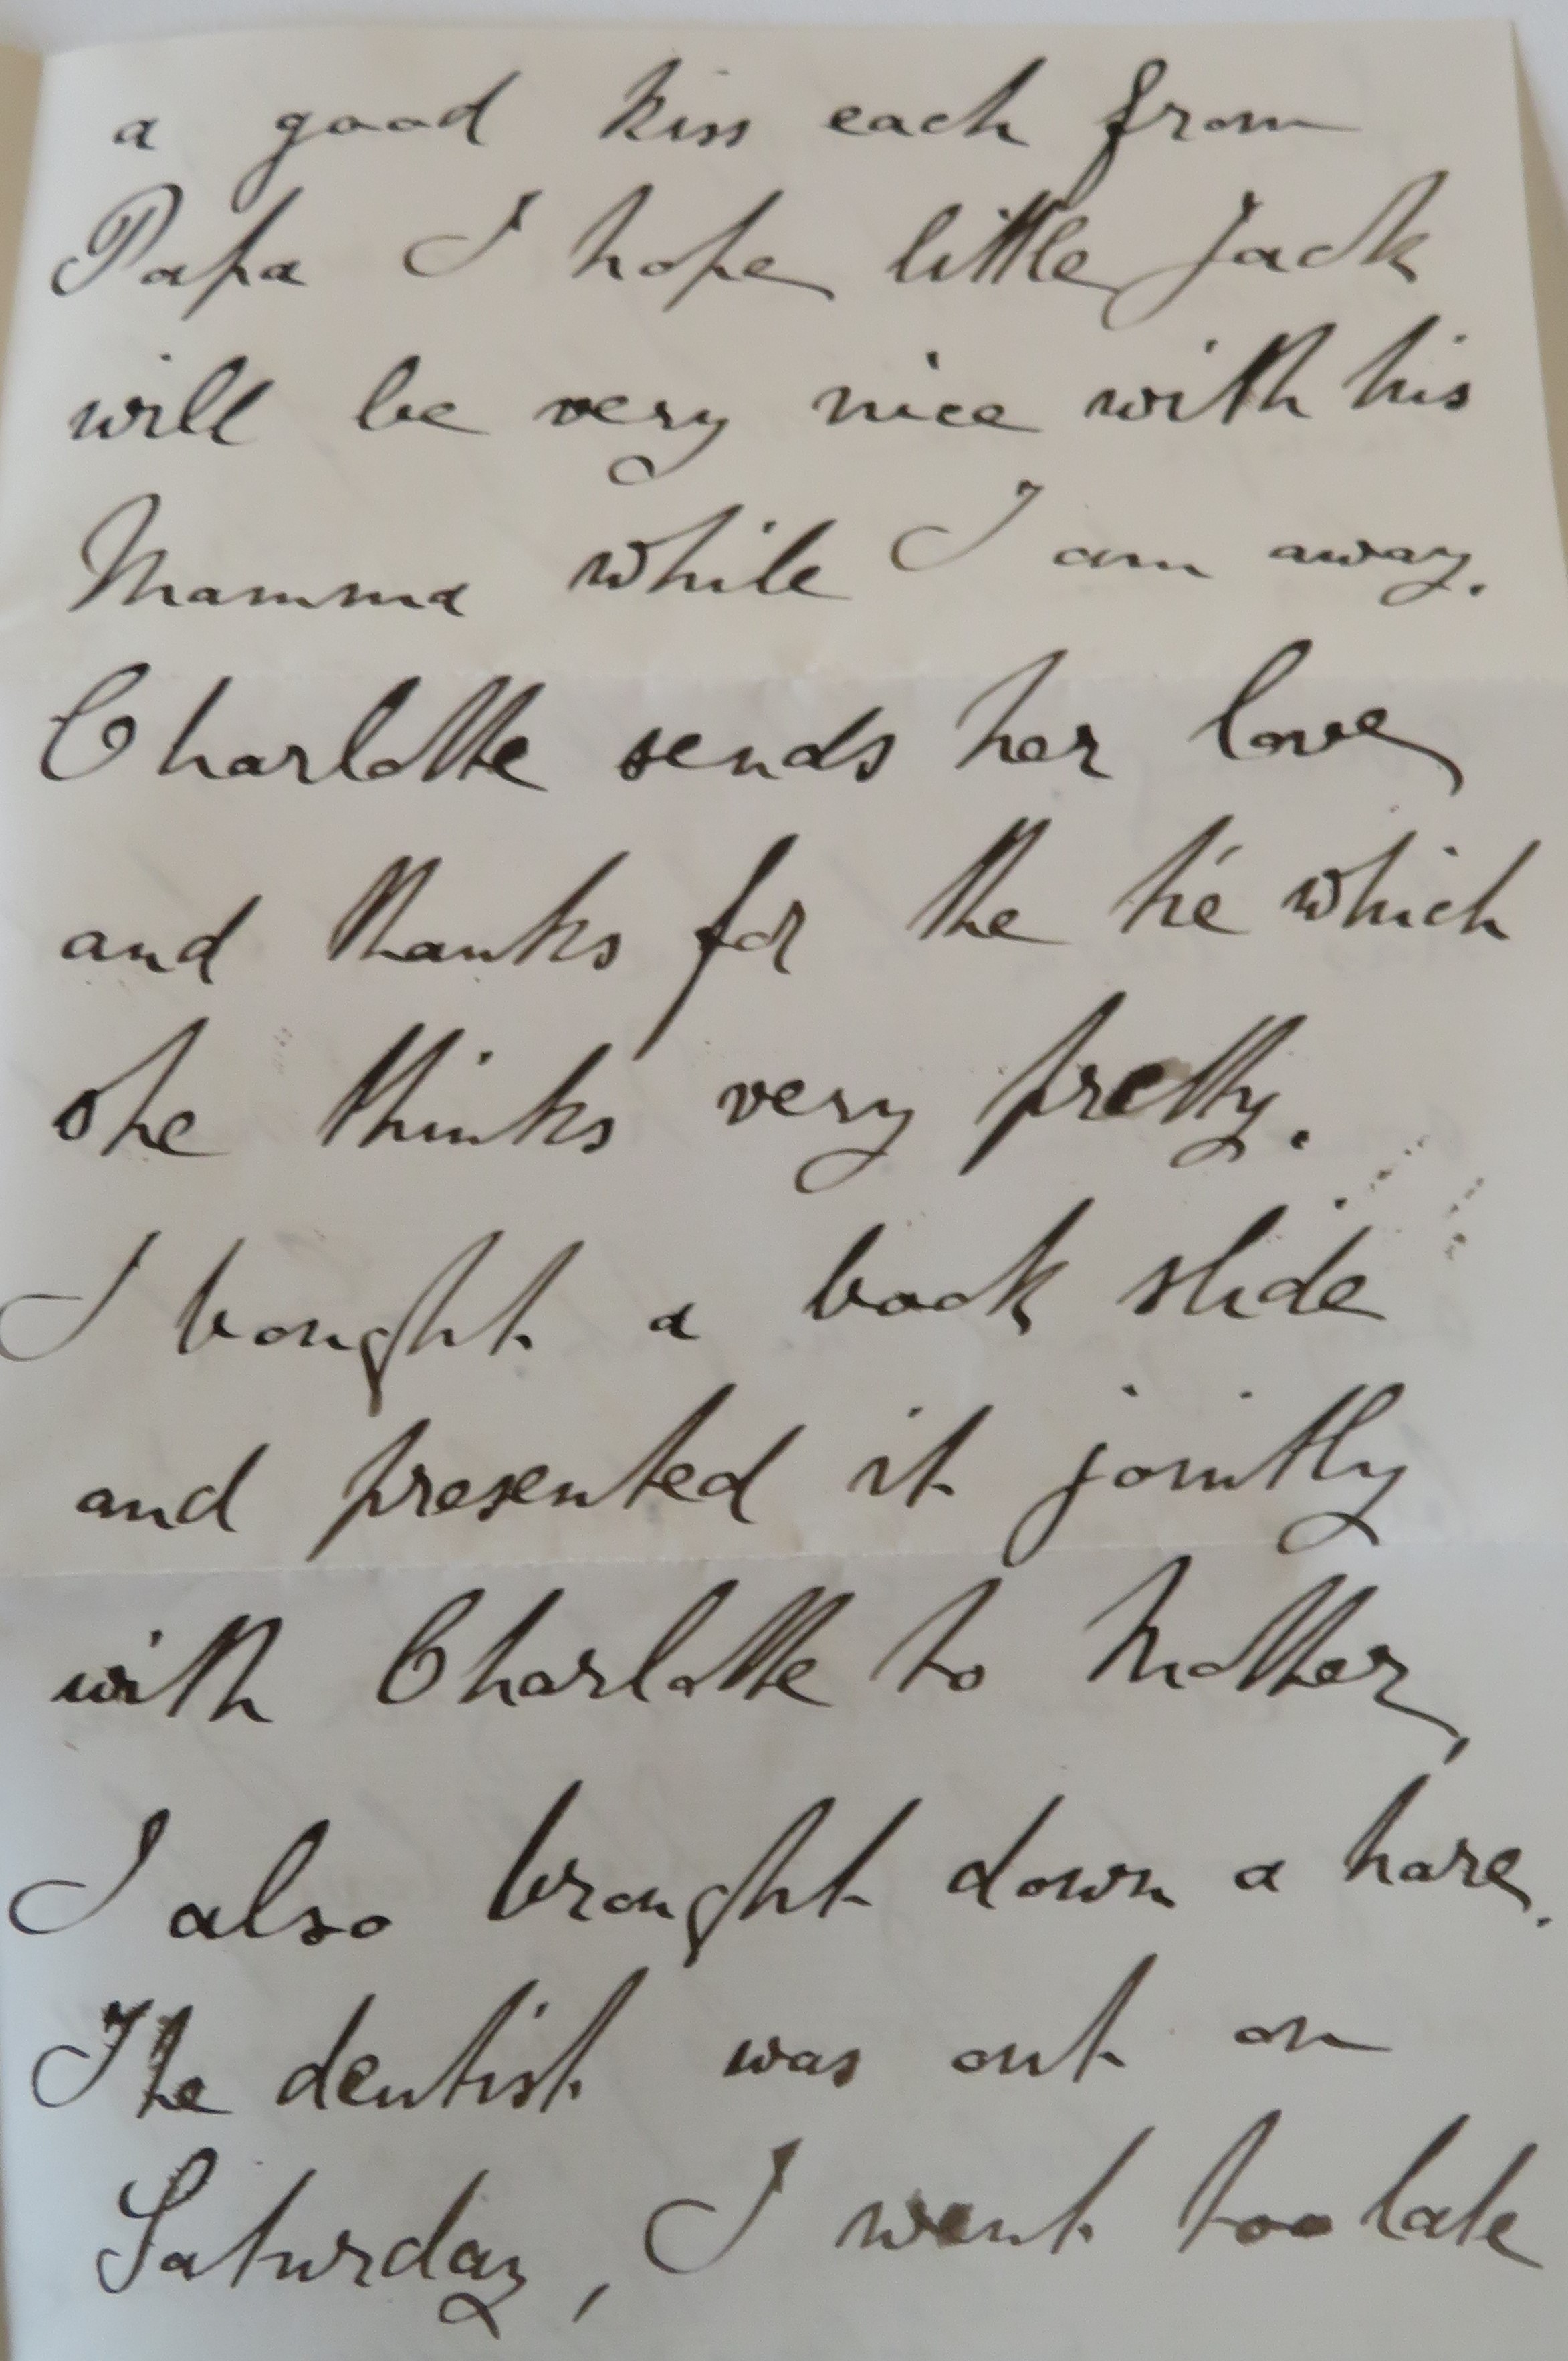 a good kiss each from
Papa I hope little Jack
will be very nice with his
Mamma while I am away.
Charlotte sends her love
and thanks for the tie which
she thinks very pretty.
I bought a book slide
and presented it jointly
with Charlotte to Mother,
I also brought down a hare.
The dentist was out on
Saturday, I went too late